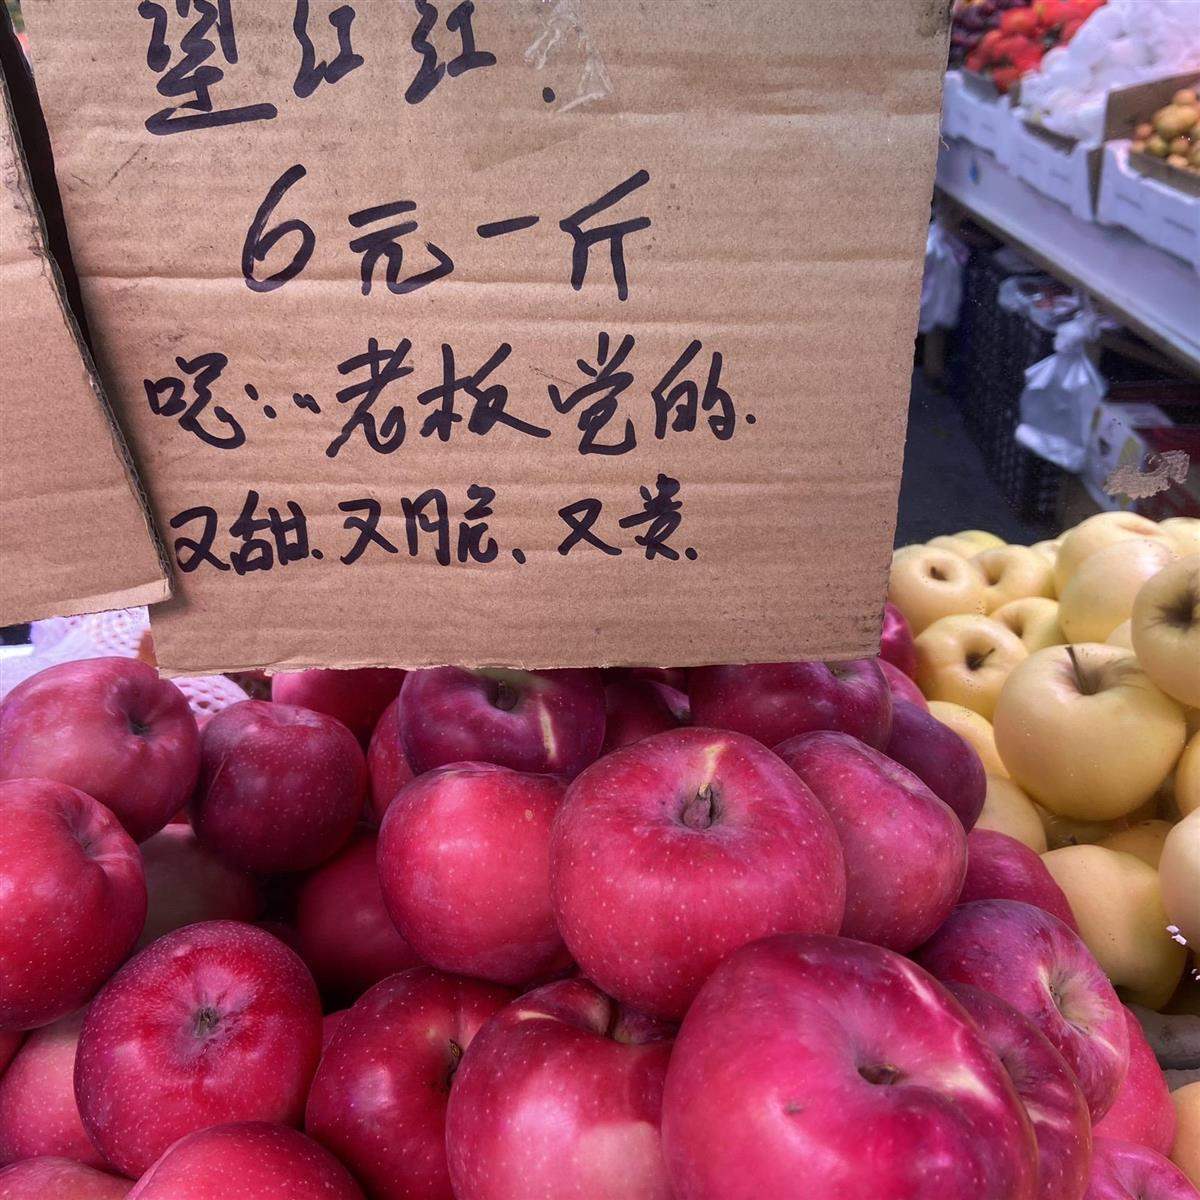 望红红.
6元一斤
呃:..老板觉的.
又甜.又脆、又贵.